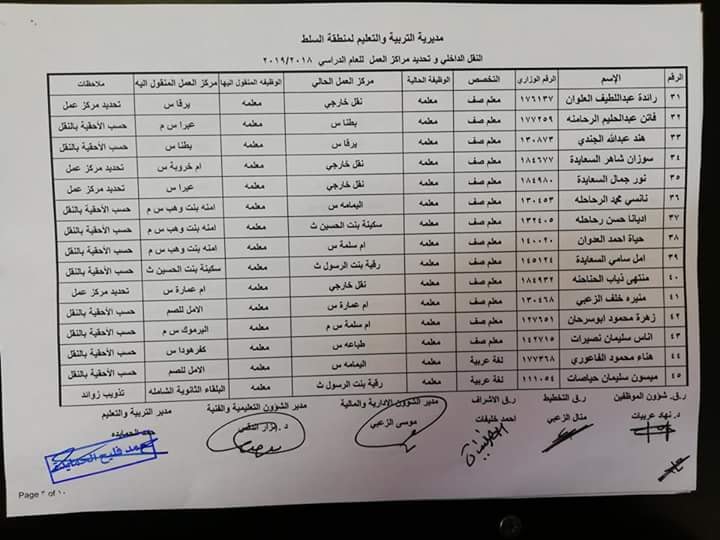 مديرية التربية والتعليم لمنطقة السلط
النقل الداخلي و تحديد مراكز العمل للعام الدراسي ٢٠١٩/٢٠١٨
الرقم الإسم الرقم الوزاري التخصص الوظيفة الحالية مركز العمل الحالي الوظيفه المنقول اليها مركز العمل المنقول اليه ملاحظات
٣١ رائدة عبداللطيف العلوان ١٧٦١٣٧ معلم صف معلمه نقل خارجي معلمه يرقا س تحديد مركز عمل
٣٢ فاتن عبدالحليم الرحامنه ١٧٧٢٥٩ معلم صف معلمه بطنا س معلمه عيرا س م حسب الأحقية بالنقل
٣٣ هند عبدالله الجندي ١٣٠٨٧٣ معلم صف معلمه يرقا س معلمه بطنا س حسب الأحقية بالنقل
٣٤ سوزان شاهر السعايدة ١٨٤٦٧٧ معلم صف معلمه نقل خارجي معلمه ام خروبة س تحديد مركز عمل
٣٥ نور جمال السعايدة ١٨٤٩٨٠ معلم صف معلمه نقل خارجي معلمه عيرا س تحديد مركز عمل
٣٦ نانسي محمد الرحاحله ١٣٠٤٥٣ معلم صف معلمه اليمامه س معلمه امنه بنت وهب س م حسب الأحقية بالنقل
٣٧ اديانا حسن رحاحله ١٣٢٤٠٥ معلم صف معلمه سكينة بنت الحسين ث معلمه امنه بنت وهب س م حسب الأحقية بالنقل
٣٨ حياة احمد العدوان ١٤٠٠٢٠ معلم صف معلمه ام سلمة س معلمه امنه بنت وهب س م حسب الأحقية بالنقل
٣٩ امل سامي السعايدة ١٤٥١٢٤ معلم صف معلمه رقية بنت الرسول ث معلمه سكينة بنت الحسين ث حسب الأحقية بالنقل
٤٠ منتهى ذياب الحناحنه ١٨٤٩٣٢ معلم صف معلمه نقل خارجي معلمه ام عمارة س تحديد مركز عمل
٤١ منيره خلف الزعبي ١٣٠٤٦٨ معلم صف معلمه ام عمارة س معلمه الامل للصم حسب الأحقية بالنقل
٤٢ زهرة محمود ابوسرحان ١٢٧٦٥١ معلم صف معلمه ام سلمة س م معلمه اليرموك س م حسب الأحقية بالنقل
٤٣ اناس سليمان نصيرات ١٤٢٧١٥ معلم صف معلمه طباعه س معلمه كفرهودا س حسب الأحقية بالنقل
٤٤ هناء محمود الفاعوري ١٧٧٣٦٨ لغة عربية معلمه اليمامه س معلمه الامل للصم حسب الأحقية بالنقل
٤٥ ميسون سليمان حياصات ١١١٠٥٤ لغة عربية معلمه رقية بنت الرسول ث معلمه البلقاء الثانوية الشامله تذويب زوائد
ر.ق. شؤون الموظفين ر.ق التخطيط ر.ق الاشراف مدير الشؤون الادارية والمالية مدير الشؤون التعليمية والفنية مدير التربية والتعليم
د. نهاد عربيات منال الزعبي احمد خليفات موسى الزعبي د. نزار
محمد فليح الحمايده
Page ٣ of ١٠